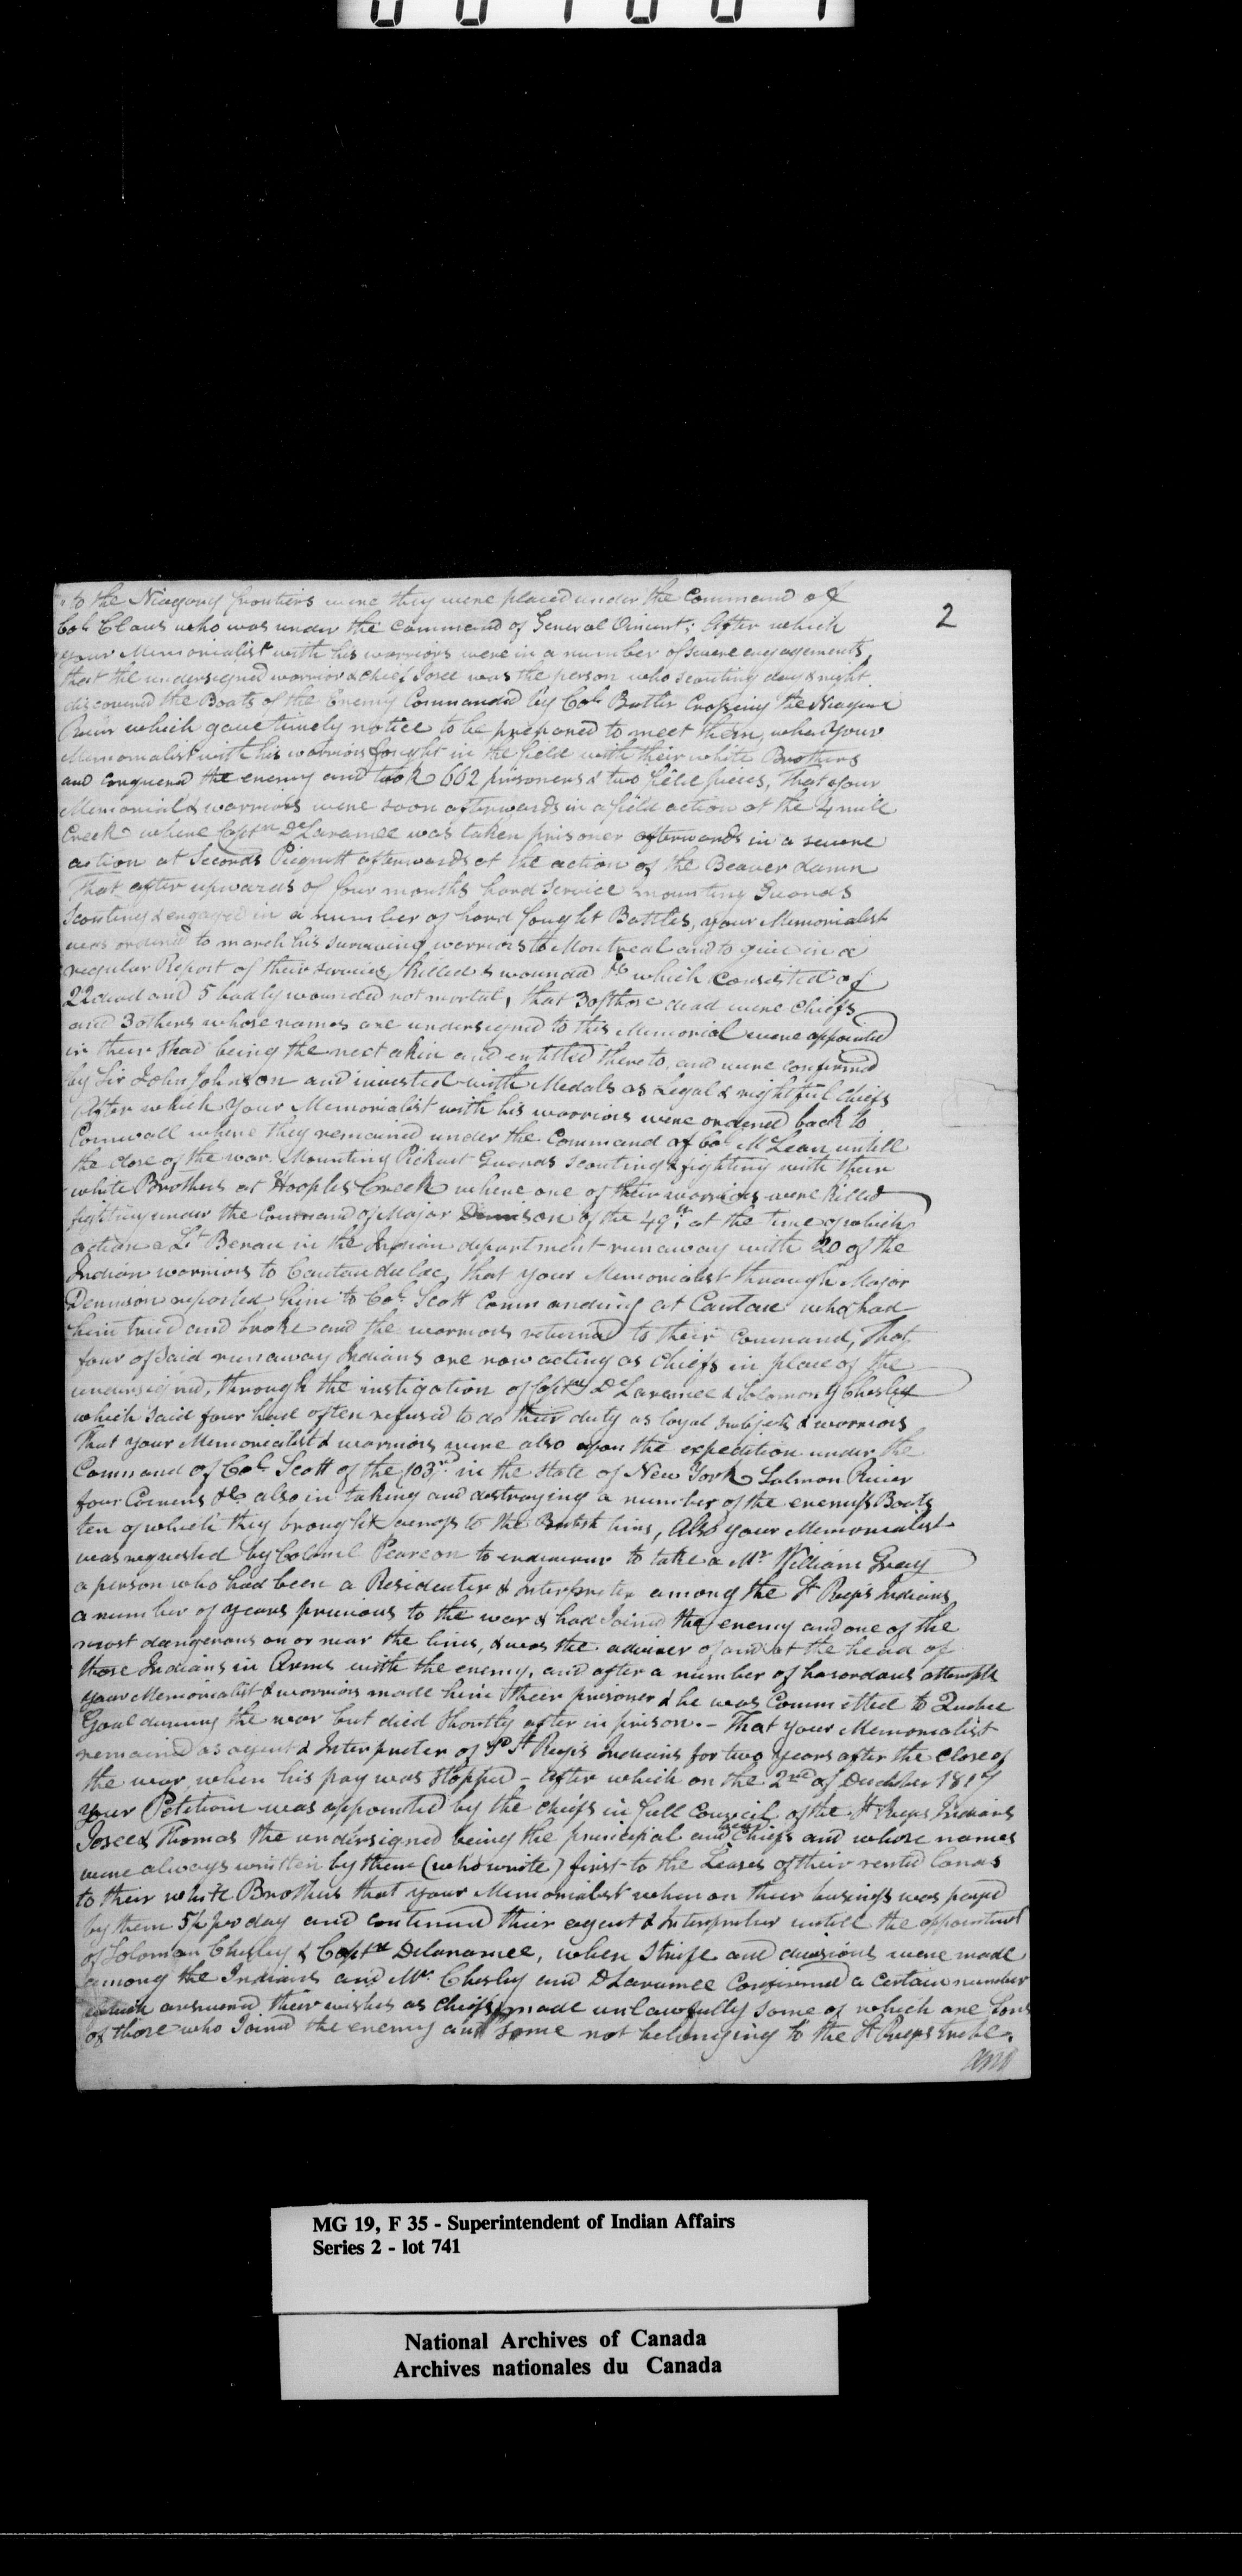 2
to the Niagary frontiers were they were placed under the Command of
Col Claus who was under the command of General Vincent; After which
your Memorialist with his warriors were in a number of severe engagements,
that the undersigned warrior & chief Josee was the person who scouting day & night
discovered the Boats of the Enemy Commanded by Col Butler Crossing the Niagara
River which gave timely notice to be prepared to meet them, when Your
Memorialist with his warriors fought in the field with their white Brothers
and Conquered the enemy and took 662 prisoners & two field pieces, That your
Memorial & warriors were soon afterwards in a field action at the 4 mile
Creek where Captn DeLaramee was taken prisoner afterwards in a severe
action at Seconds Picquett afterwards at the action of the Beaver damn
That after upwards of four months hard Service mounting Guards
Scouting & engaged in a number of hard fought Battles, your Memorialist
was ordered to march his surviving warriors to Montreal and to give in a
regular Report of their services killed & wounded &c which Consisted of
22 dead and 5 badly wounded not mortal, that 3 of those dead were Chiefs
and 3 others whose names are undersigned to this Memorial were appointed
in their Stead being the nect akin and entitled thereto, and were confirmed
by Sir John Johnson and invested with Medals as Legal & rightful Chiefs
After which Your Memorialist with his warriors were ordered back to
Cornwall where they remained under the Command of Col McLean untill
the close of the war. Mounting Pickut Guards scouting & fighting with their
white Brothers at Hooples Creek where one of their warriors were killed
fighting under the Command of Major Dennison of the 49th at the time of which
action a Lt Benau in the Indian department runaway with 20 of the
Indian warriors to Cautau du lac, that your Memorialist through Major
Dennison reported him to Col Scott Commanding at Cautau who had
him tried and broke and the warriors returned to their Command, That
four of Said runaway Indians are now acting as Chiefs in place of the
undersigned, through the instigation of Captn DeLaramee & Solomon Y Chesley
which said four had often refused to do their duty as loyal subjects & warriors
That your Memorialist & warriors were also upon the expedition under the
Command of Col Scott of the 103rd in the State of New York Salmon River
four Corners &c also in taking and destroying a number of the enemys Boats
ten of which they brought across to the British lins, Also your Memorialist
was requested by Colonel Pearson to endeavour to take a Mr William Gray
a person who had been a Residenter & interpreter among the St Regis Indians
a number of years previous to the war & had Joined the enemy and one of the
most dangerous on or near the lines, & was the adviser of and at the head of
those Indians in Arms with the enemy, and after a number of hasordous attempts
your Memorialist & warriors made him their prisoner & he was Committed to Quebec
Goal during the war but died Shortly after in prison. - That your Memorialist
remained as agent & Interpreter of Sd St Regis Indians for two years after the Close of
the war, when his pay was stopped - After which on the 2nd of December 1817
Your Petition was appointed by the chiefs in full Council of the St Regis Indians
Josee & Thomas the undersigned being the principal and head Chiefs and whose names
were always written by them (who write) first to the Leases of their rented lands
to their white Brothers that your Memorialist when on their business was payed
by them 5/ per day and continued their agent & Interpreter untill the appointment
of Solomon Chesley & Captn Delaramee, when Strife and divisions were made
among the Indians and Mr Chesley and DLaramee Confirmed a certain number
which answered their wishes as Chiefs, made unlawfully some of which are Sons
of those who Joined the enemy and some not belonging to the St Regis tribe.
and
MG 19, F 35 - Superintendent of Indian Affairs
Series 2 - lot 741
National Archives of Canada
Archives nationales du Canada